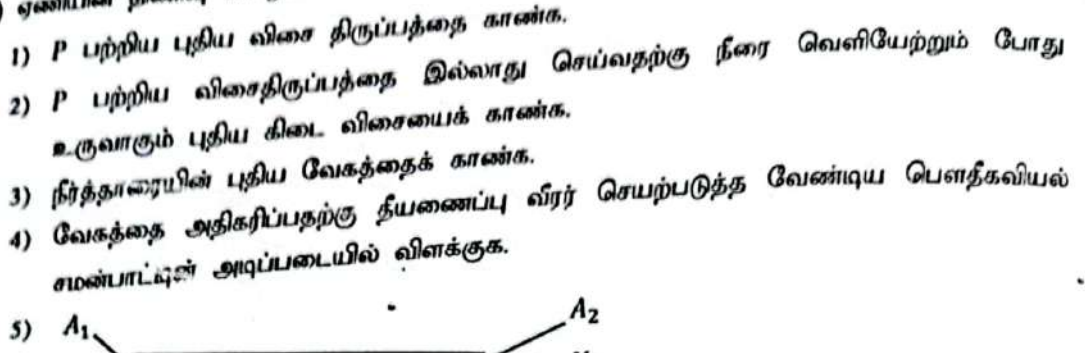 1) P பற்றிய புதிய விசை திருப்பத்தை காண்க.
2) P பற்றிய விசைதிருப்பத்தை இல்லாது செய்வதற்கு நீரை வெளியேற்றும் போது
உருவாகும் புதிய கிடை விசையைக் காண்க.
3) நீர்த்தாரையின் புதிய வேகத்தைக் காண்க.
4) வேகத்தை அதிகரிப்பதற்கு தீயணைப்பு வீரர் செயற்படுத்த வேண்டிய பௌதீகவியல்
சமன்பாட்டின் அடிப்படையில் விளக்குக.
5) A₁ A₂